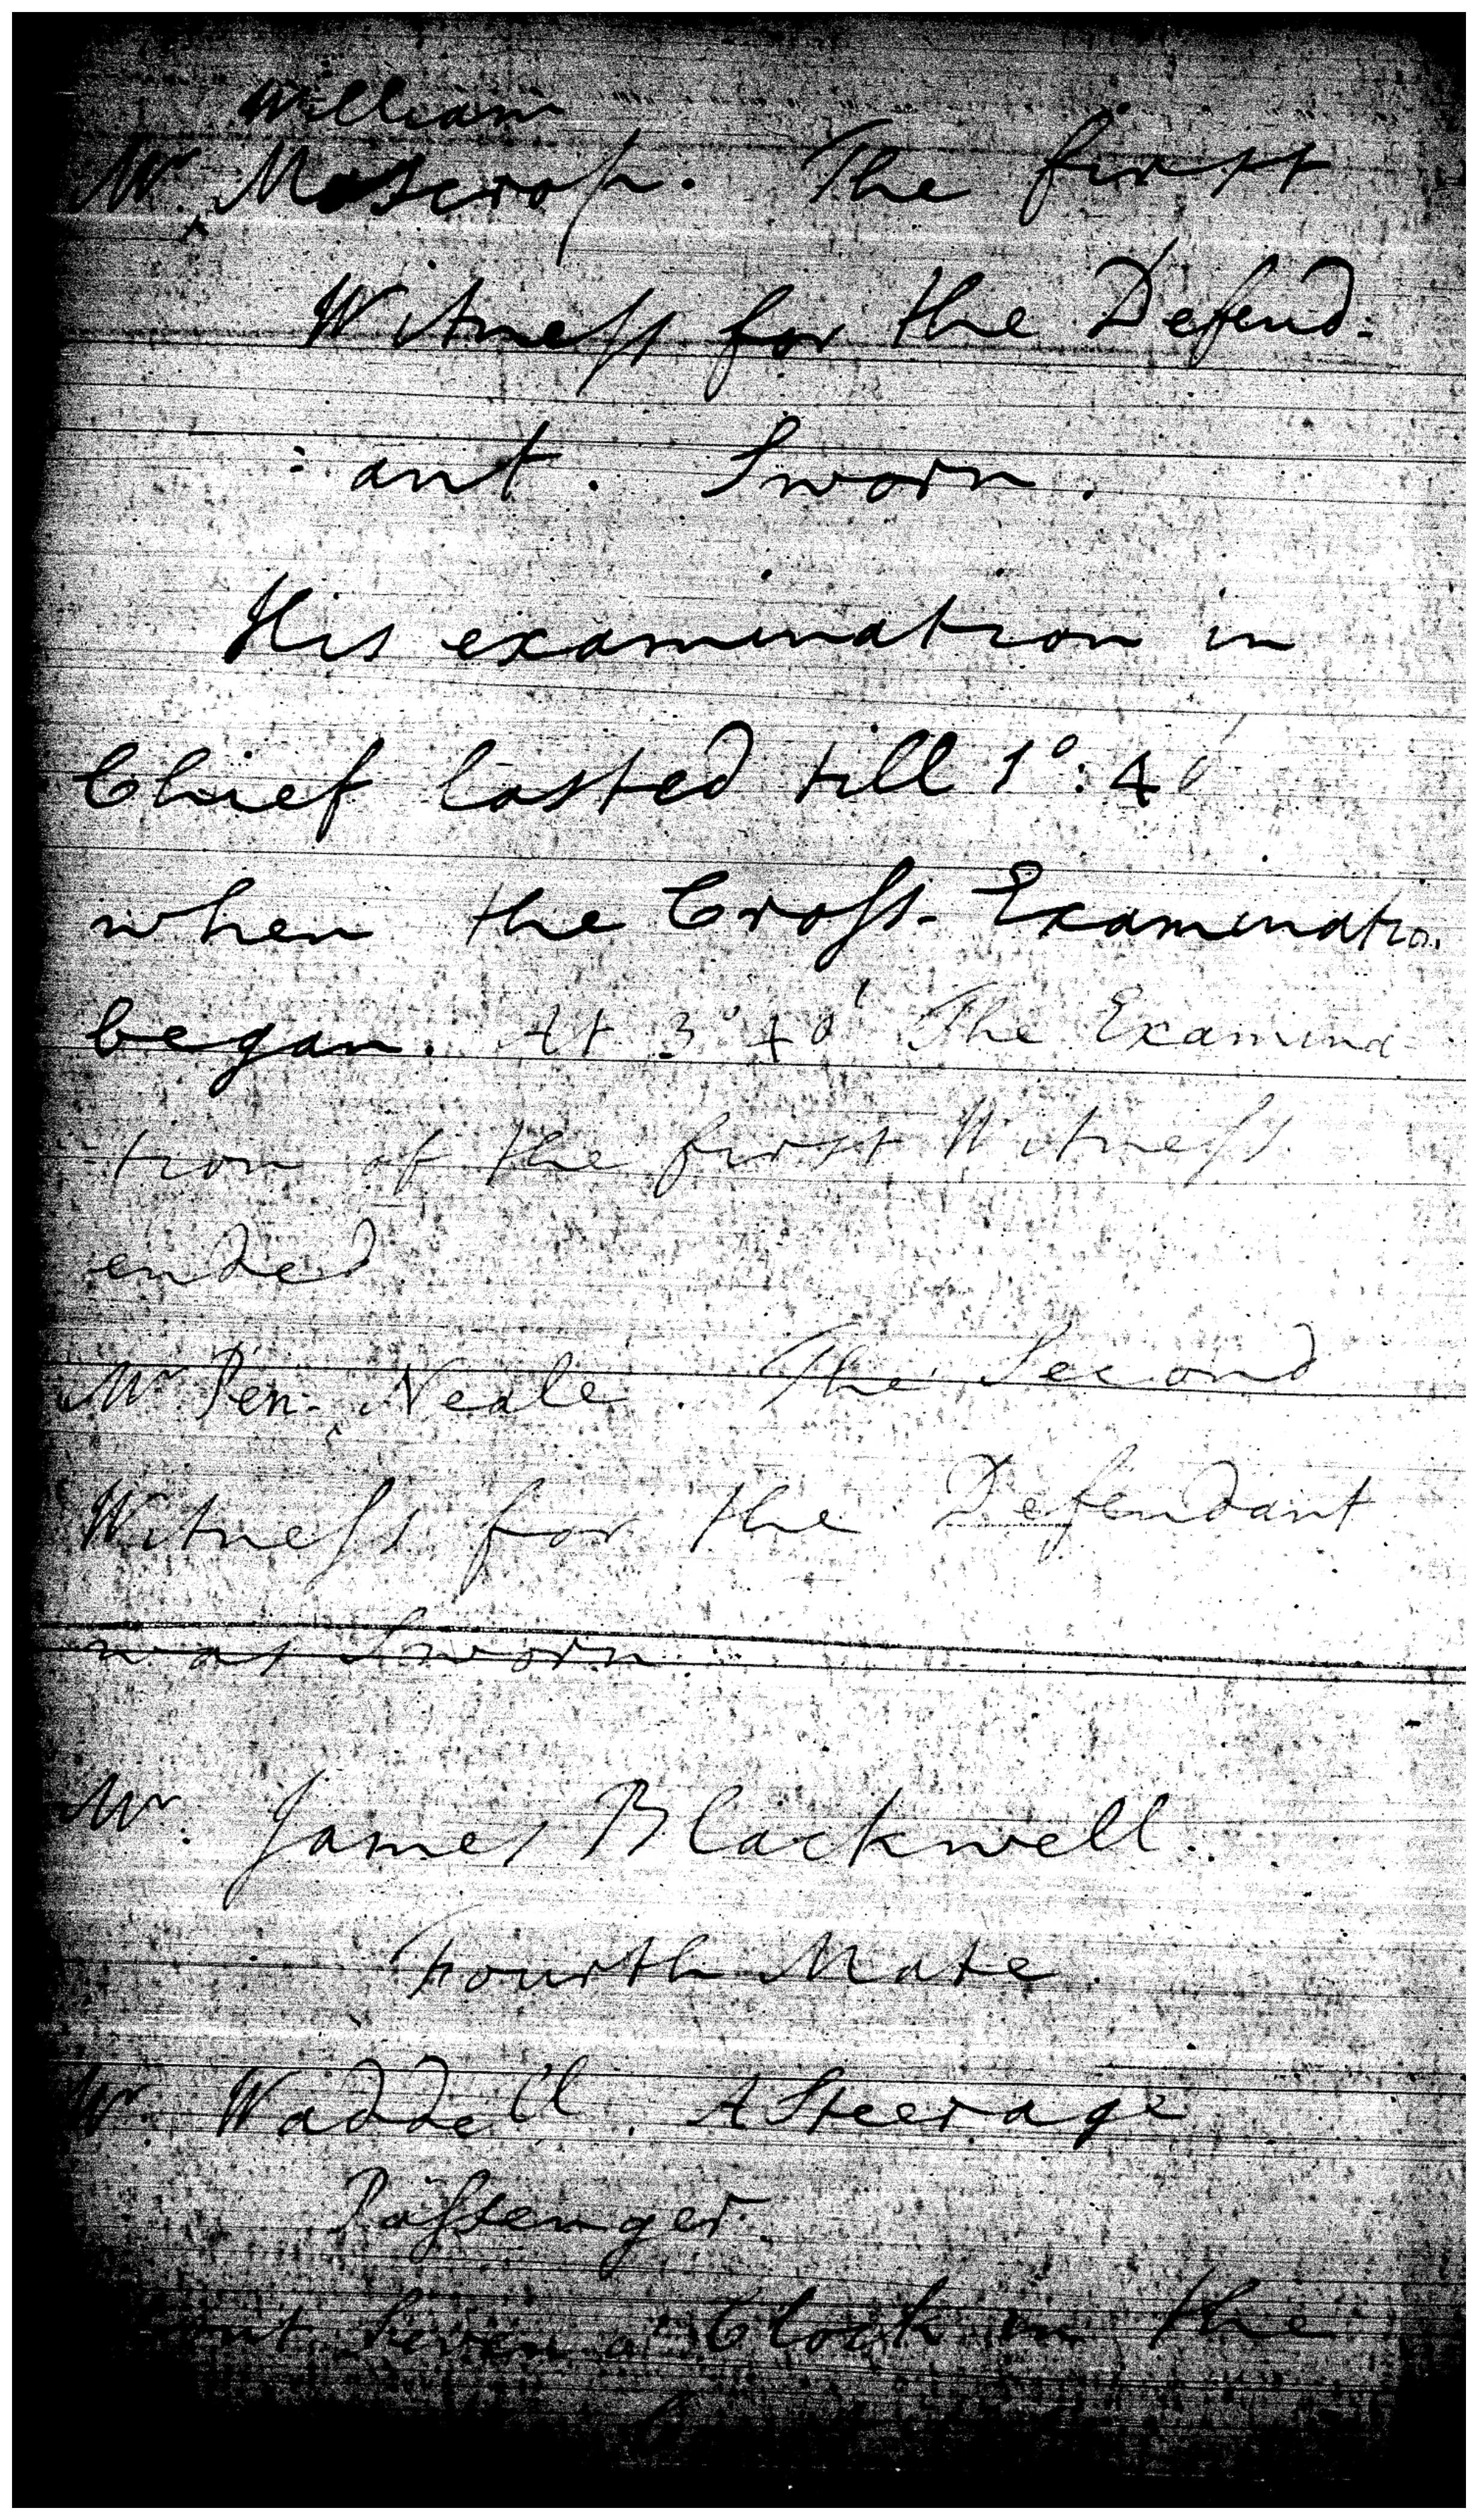 William
Mr. Moscrop. The first
Witness for the Defend:
: ant. Sworn.
His examination in
Chief lasted till 1°: 40'
when the Cross-Examinatio.
began. At 3° 40' The Examina-
-tion of the first Witness
ended
Mr Pen: Neale. The Second
Witness for the Defendant
was Sworn.
Mr. James Blackwell.
Fourth Mate.
Mr. Waddell. A Steerage
Passenger.
Seven o' Clock in the